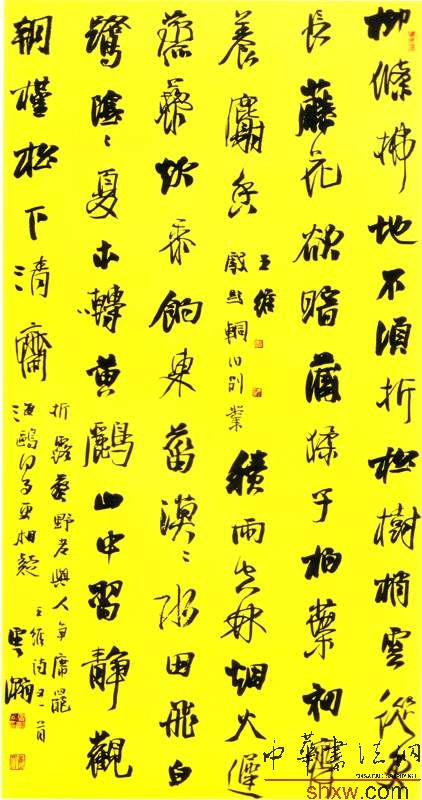 柳條拂地不須折松樹梢雲從更
長藤花欲暗藏猱子柏葉初齊
養麝香
王維
戲題輞川別業
積雨空林烟火遲
蒸藜炊黍餉東菑漠〻水田飛白
鷺陰〻夏木轉黃鸝山中習靜觀
朝槿松下清齋
折露葵野老與人爭席罷
海鷗何事更相疑
王維詩二首
雲瀚
中華書法網
shxw.com